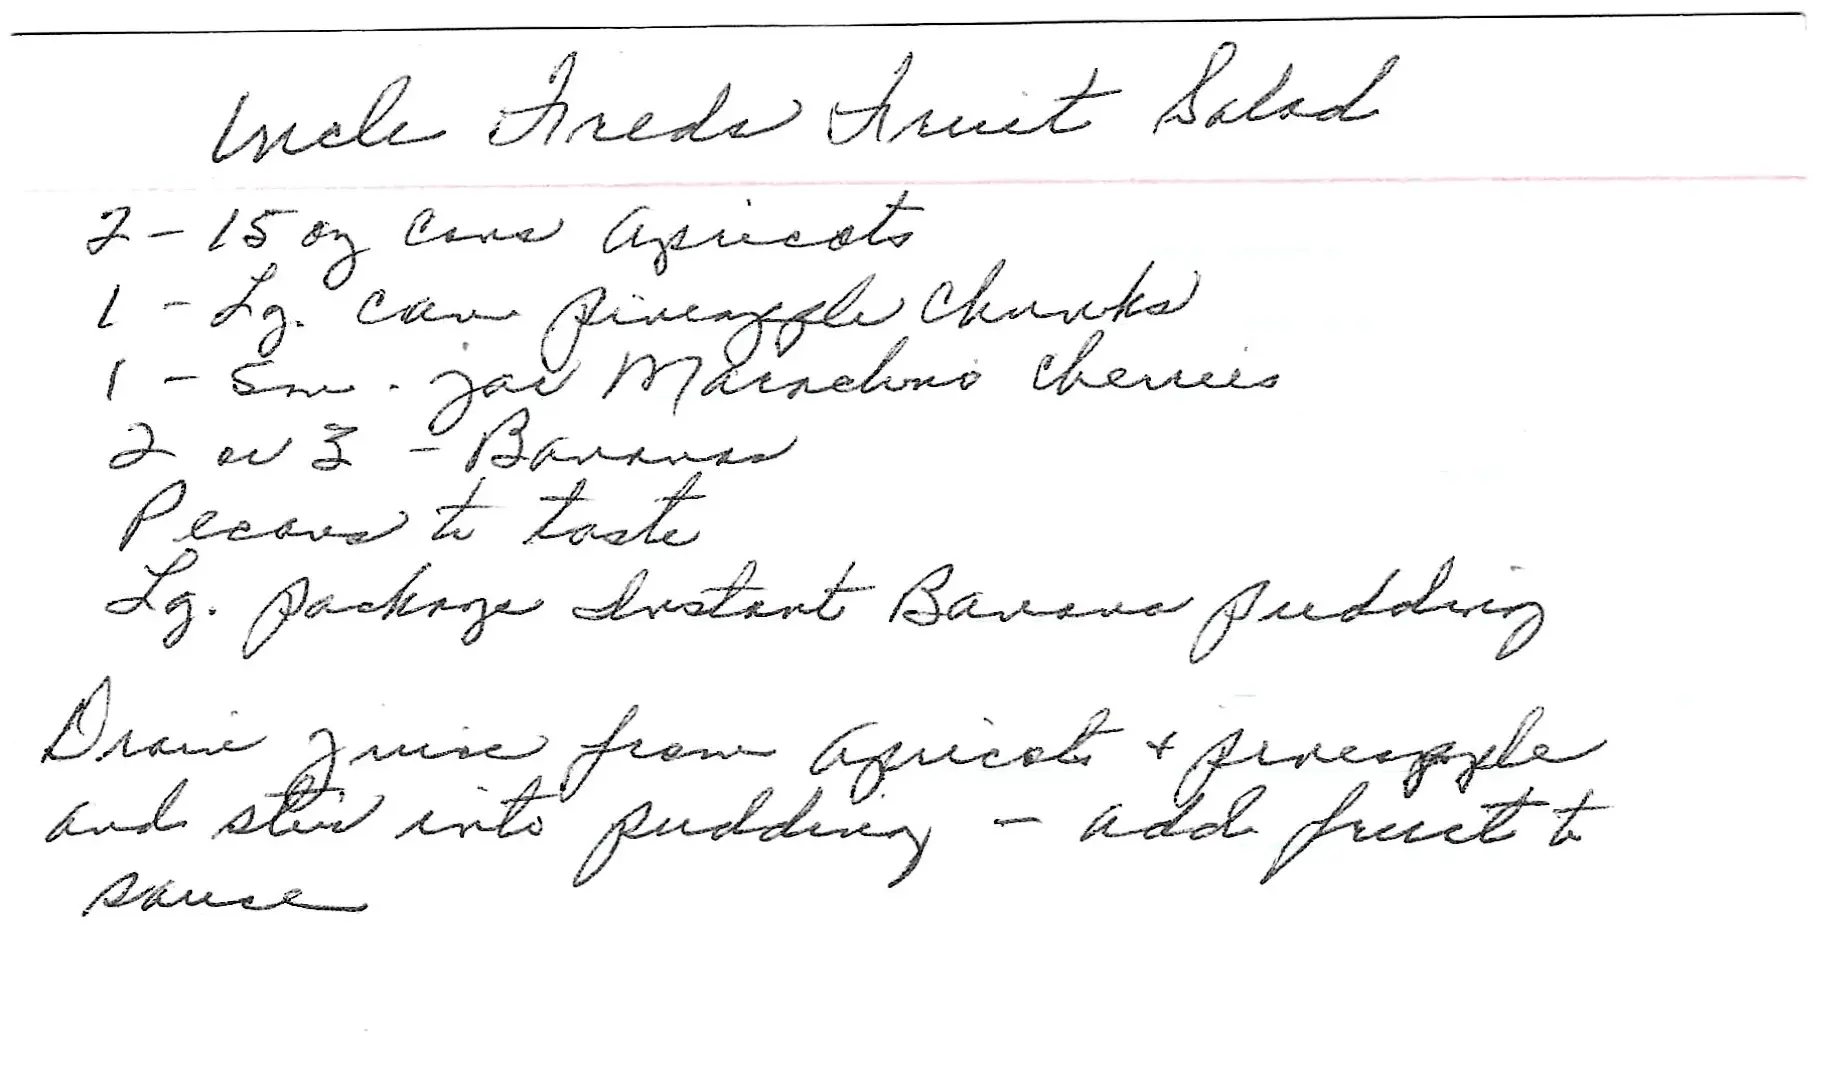 Uncle Freds Fruit Salad
2 - 15 oz cans apricots
1 - Lg. can pineapple chunks
1 - sm. jar Marachino cherries
2 or 3 - Bananas
Pecans to taste
Lg. package Instant Banana pudding
Drain juice from apricots + pineapple
and stir into pudding - add fruit to
sauce